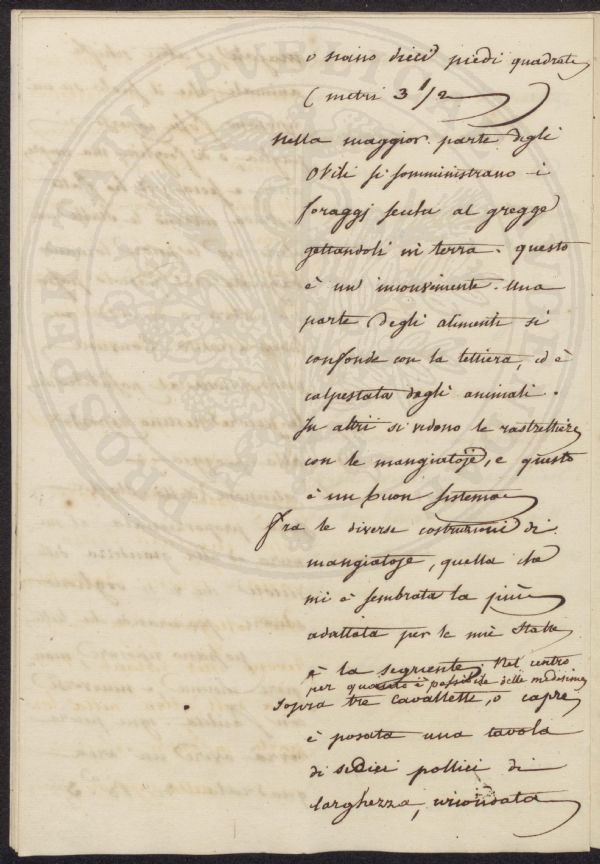 o siano dieci piedi quadrati
( metri 3 1/2 )
Nella maggior parte degli
Ovili si somministrano i
foraggj secchi al gregge
gettandoli in terra. questo
è un' inconveniente. Una
parte degli alimenti si
confonde con la lettiera, ed è
calpestata dagli animali.
In altri si vedono le rastrelliere
con le mangiatoje, e questo
è un buon sistema
Fra le diverse costruzioni di
mangiatoje, quella che
mi è sembrata la più
adattata per le mie stalle
è la seguente. Nel centro
per quanto è possibile delle medesime
sopra tre cavallette, o capre
è posata una tavola
di sedici pollici di
larghezza, circondata